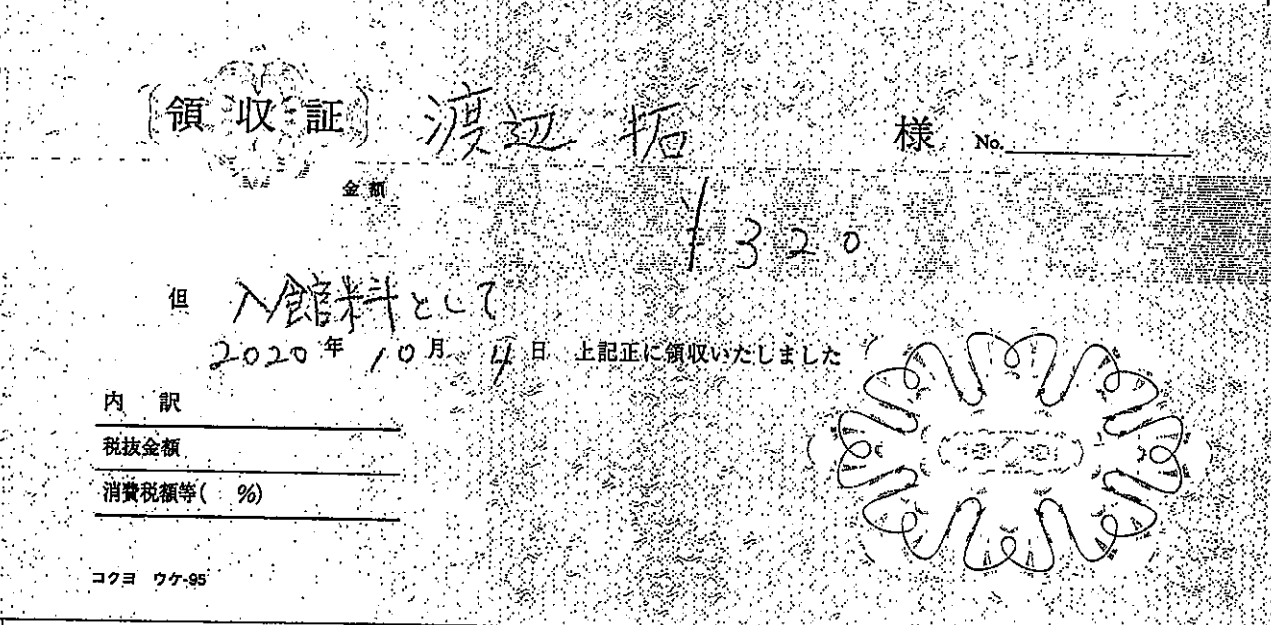 領収証 渡辺 拓 様 No.
金額
¥320
但 入館料として
2020年 10月 4日 上記正に領収いたしました
内訳
税抜金額
消費税額等( %)
コクヨ ウケ-95